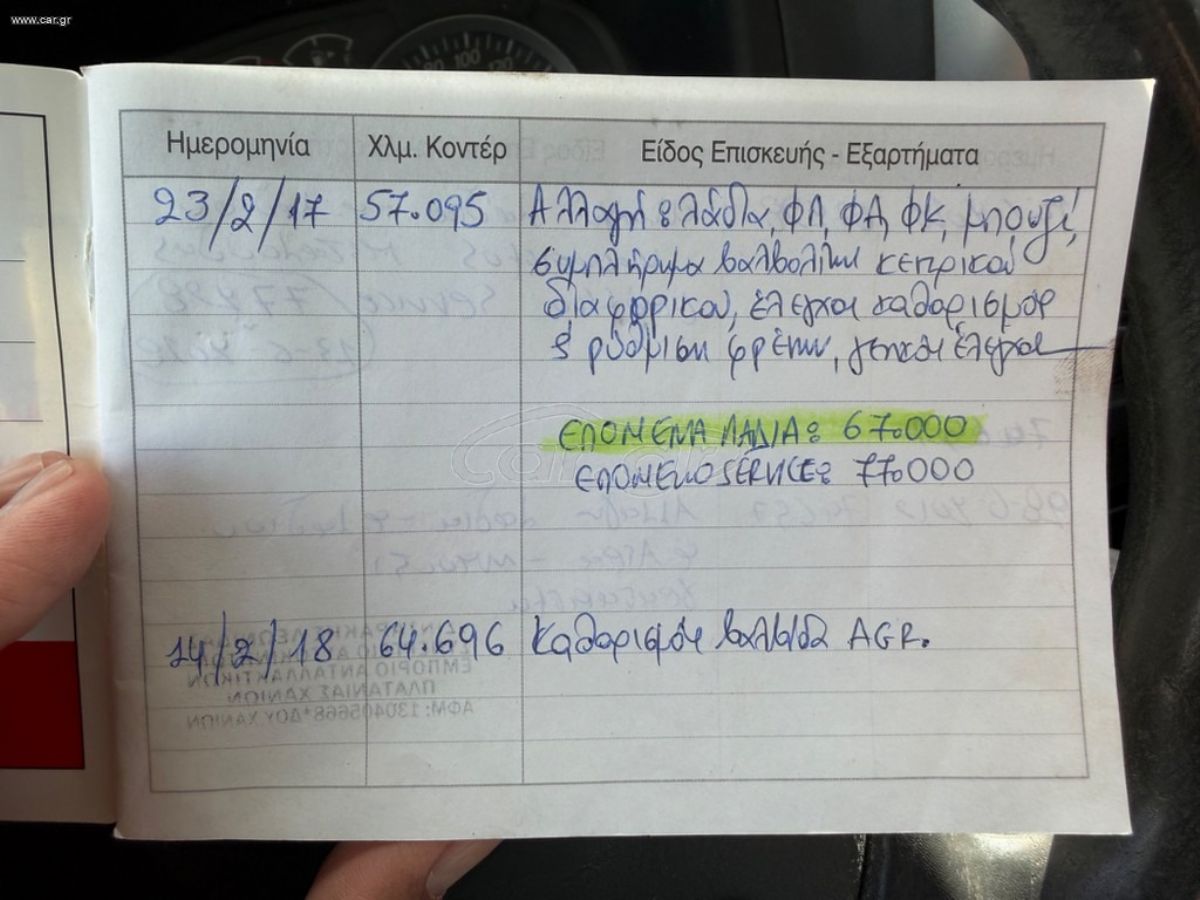 www.car.gr
Ημερομηνία Χλμ. Κοντέρ Είδος Επισκευής - Εξαρτήματα
23/2/17 57.095 Αλλαγή: λάδια, ΦΛ, ΦΑ, ΦΚ, μπουζί,
συμπλήρωμα βαλβολίνη κεντρικού
διαφορικού, έλεγχοι καθαρισμός
& ρύθμιση φρένων, γενικοί έλεγχοι
ΕΠΟΜΕΝΑ ΛΑΔΙΑ: 67.000
ΕΠΟΜΕΝΟ SERVICE: 77.000
14/2/18 64.696 Καθαρισμός βαλβίδα AGR.
ΕΜΠΟΡΙΟ ΑΝΤΑΛΛΑΚΤΙΚΩΝ
ΠΛΑΤΑΝΙΑΣ ΧΑΝΙΩΝ
ΑΦΜ: 130405668*ΔΟΥ ΧΑΝΙΩΝ